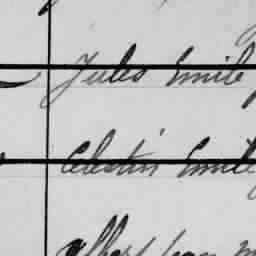 Jules Emile
Celestin Emile
Albert Jean M